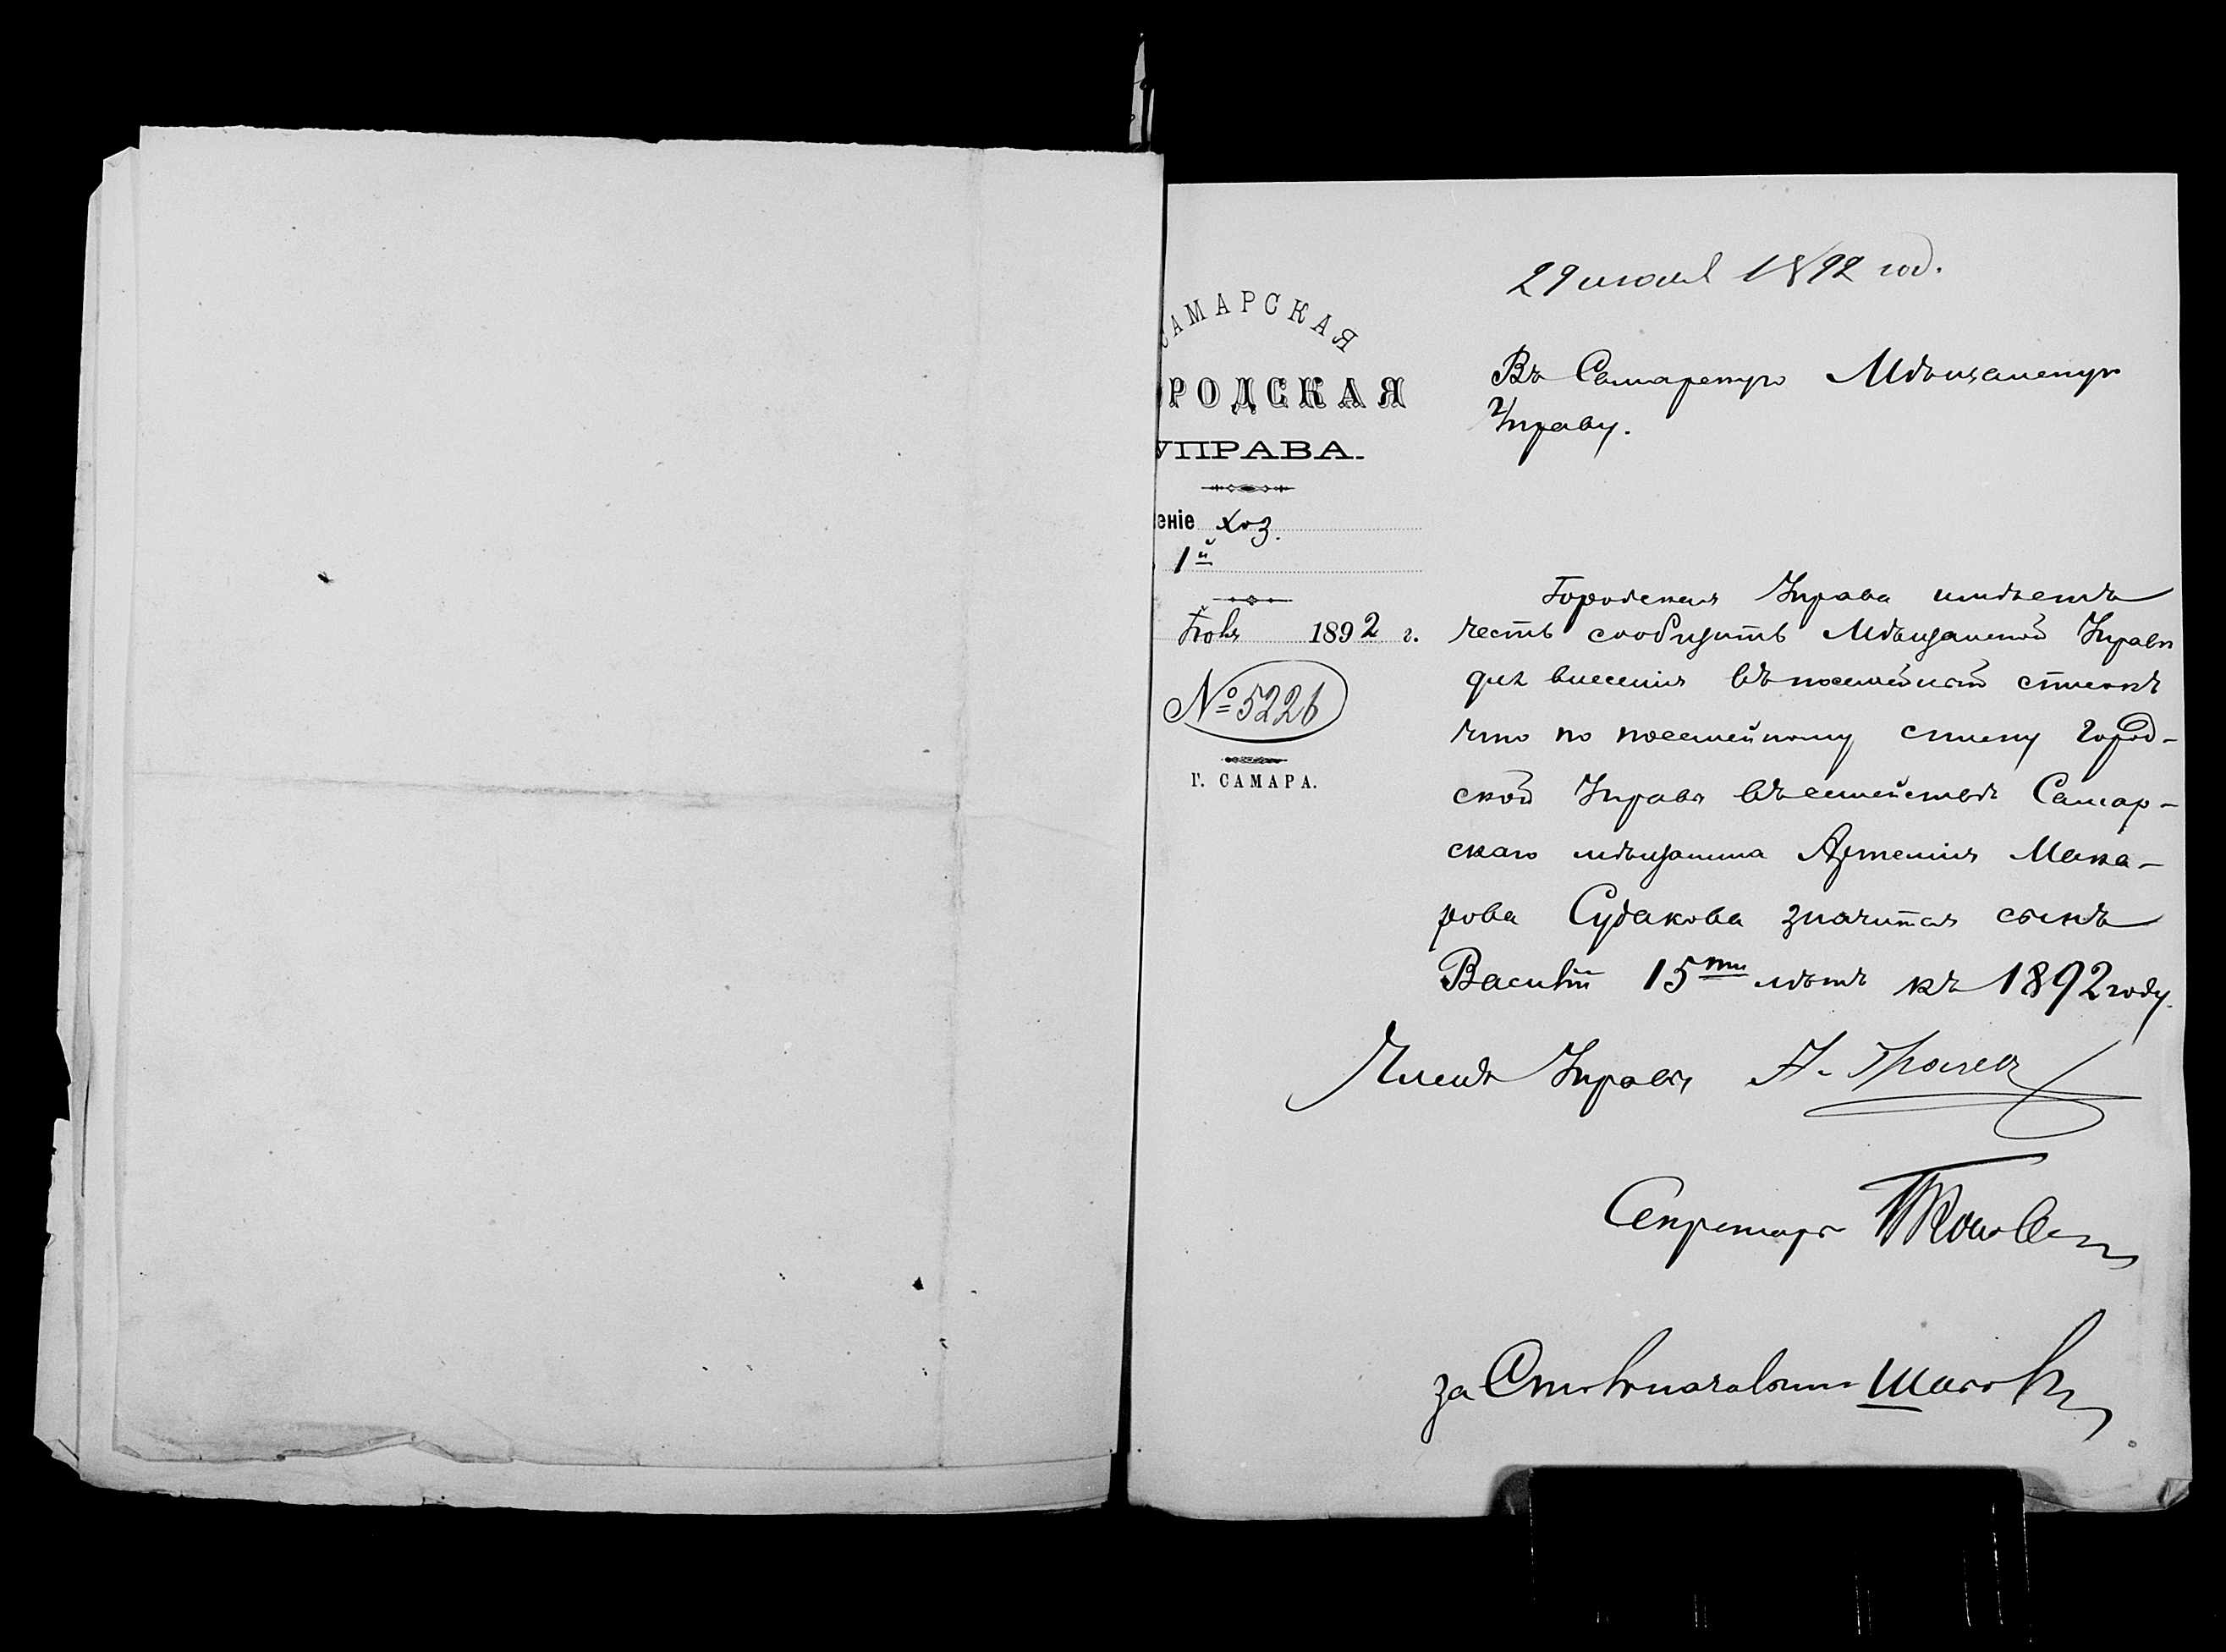 29 июля 1892 год.
САМАРСКАЯ
ОРОДСКАЯ
УПРАВА.
еніе хоз.
1й
1892 г.
№ 5226
Г. САМАРА.
Въ Самарскую Мѣщанскую
Управу.
Городская Управа имѣетъ
честь сообщить Мѣщанской Управѣ
для внесенія въ посемейный списокъ
что по посемейному списку Город-
ской Управы въ семействѣ Самар-
скаго мѣщанина Артемія Мака-
рова Судакова значится сынъ
Василій 15ти лѣтъ къ 1892 году.
Членъ Управы Н.
Секретарь
за Столоначальника